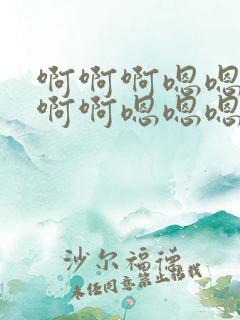 啊啊啊嗯嗯
啊啊嗯嗯嗯
沙尔福德
未经同意禁止转载